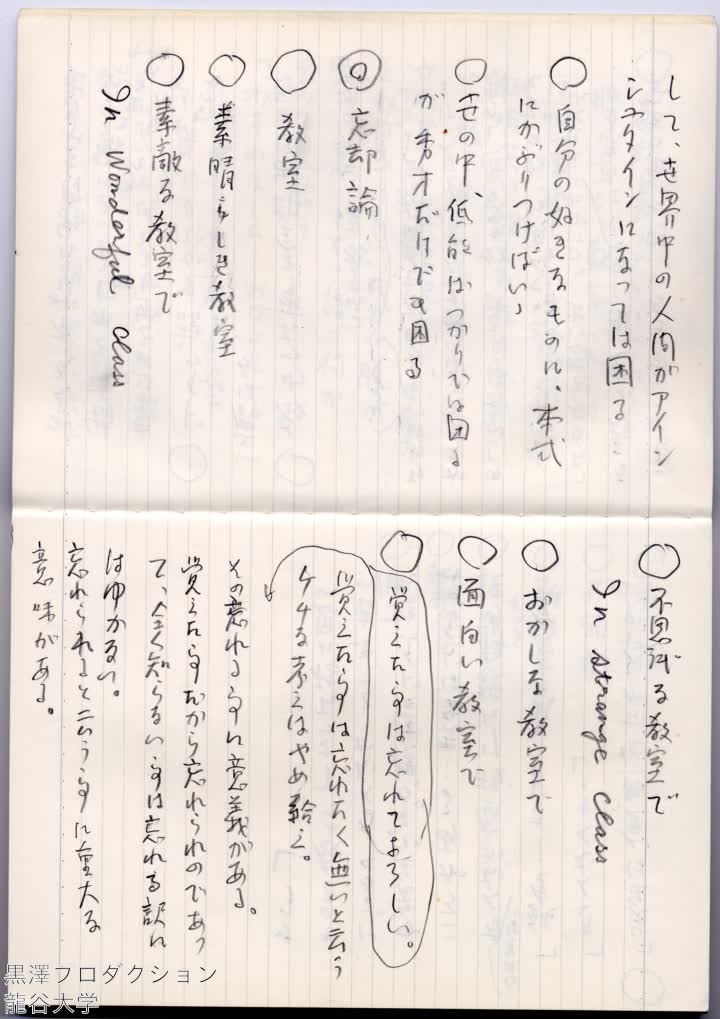 して、世界中の人間がアイン
シュタインになっては困る
○ 自分の好きなものに、本式
にかぶりつけばいゝ
○ 世の中、低能ばつかりでは困る
が秀才だけでも困る
◎ 忘却論、
○ 教室
○ 素晴らしき教室
○ 素敵な教室で
In Wonderful class
○ 不思議な教室で
In strange class
○ おかしな教室で
○ 面白い教室で
○ 覚えた事は忘れてよろしい。
覚えた事は忘れたく無いと云う
ケチな考えはやめ給え。
その忘れる事に意義がある。
覚えた事だから忘れられのであっ
て、全く知らない事は忘れる訳に
はゆかない。
忘れられると云う事に重大な
意味がある。
黒澤プロダクション
龍谷大学